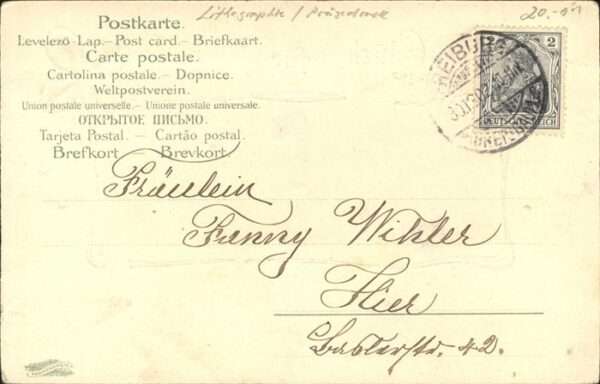 Lithographie / Prägedruck
20.-
Postkarte.
Levelező-Lap.–Post card.–Briefkaart.
Carte postale.
Cartolina postale.– Dopnice.
Weltpostverein.
Union postale universelle.– Unione postale universale.
ОТКРЫТОЕ ПИСЬМО.
Tarjeta Postal. – Cartão postal.
Brefkort – Brevkort.
FREIBURG
2
Fräulein
Fanny Wihler
Hier
Baslerstr. 42.